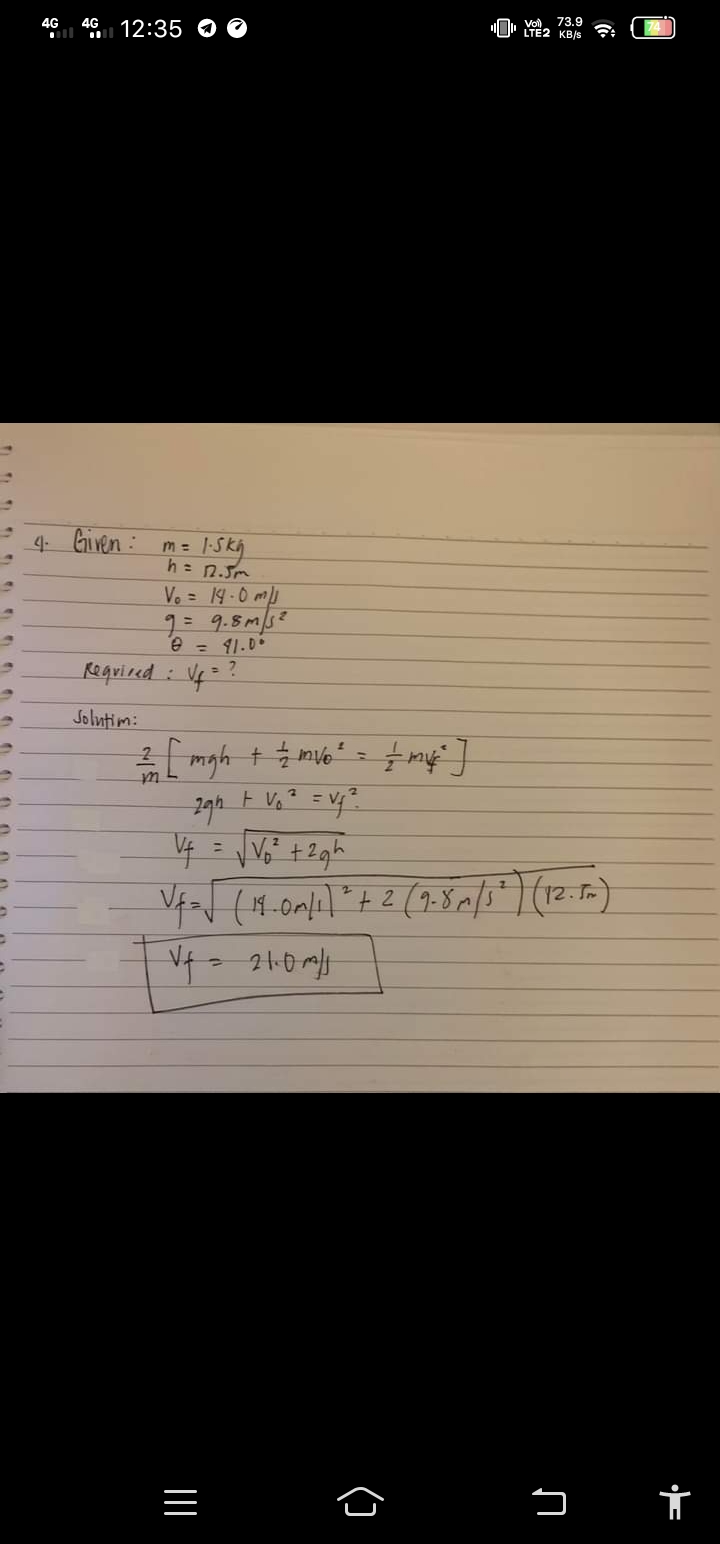 4G 4G 12:35 Vo) LTE2 73.9 KB/s 74
4. Given: m = 1.5kg
h = 12.5m
V₀ = 14.0 m/s
g = 9.8m/s²
θ = 41.0°
Required: Vf = ?
Solution:
2/m [ mgh + 1/2 mv₀² = 1/2 mvf² ]
2gh + V₀² = Vf².
Vf = √(V₀² + 2gh)
Vf = √((14.0m/s)² + 2 (9.8m/s²) (12.5m))
Vf = 21.0 m/s